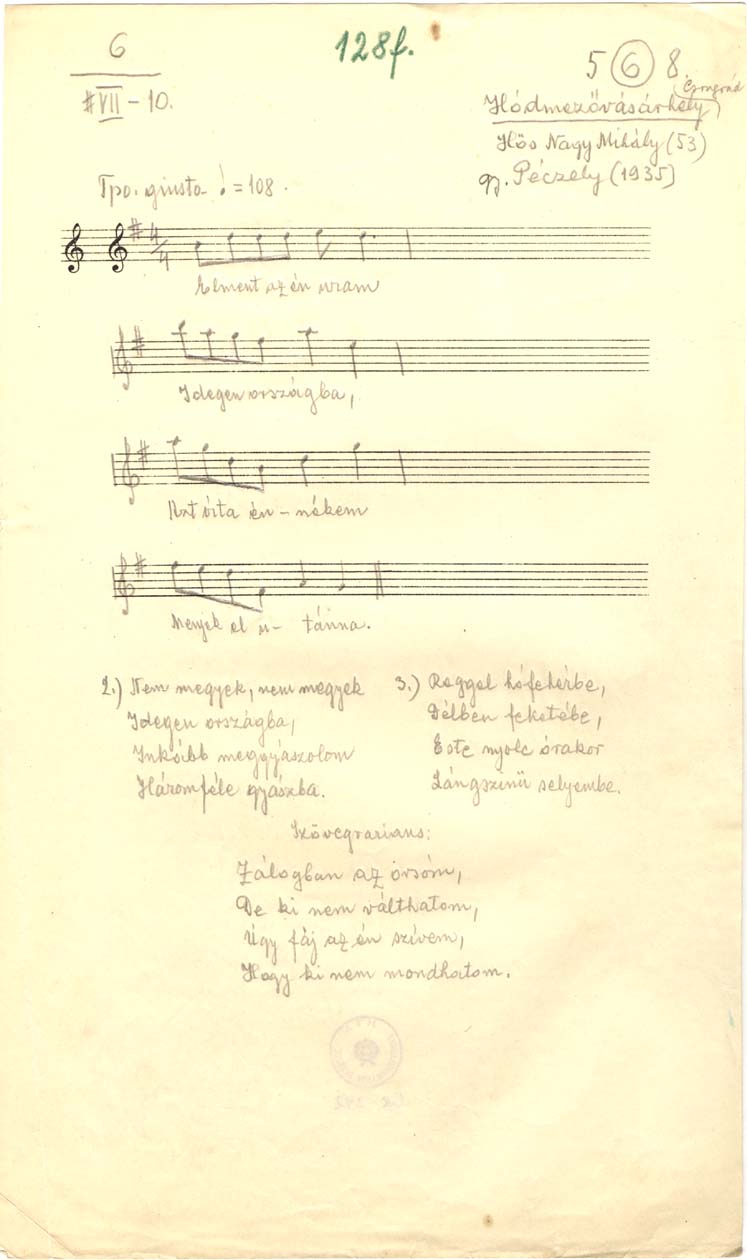 6
#VII - 10.
128f.
5 6 8.
(Csongrád)
Hódmezővásárhely
Hős Nagy Mihály (53)
gy. Péczely (1935)
Tpo. giusto ♩ = 108.
4/4
Elment az én uram
Idegen országba,
Azt írta én - nékem
Menjek el u- tánna.
2.) Nem megyek, nem megyek
Idegen országba,
Inkább meggyászolom
Háromféle gyászba.
3.) Reggel hófehérbe,
Délben feketébe,
Este nyolc órakor
Lángszinü selyembe.
Szövegvariáns:
Zálogban az orsóm,
De ki nem válthatom,
Úgy fáj az én szívem,
Hogy ki nem mondhatom.